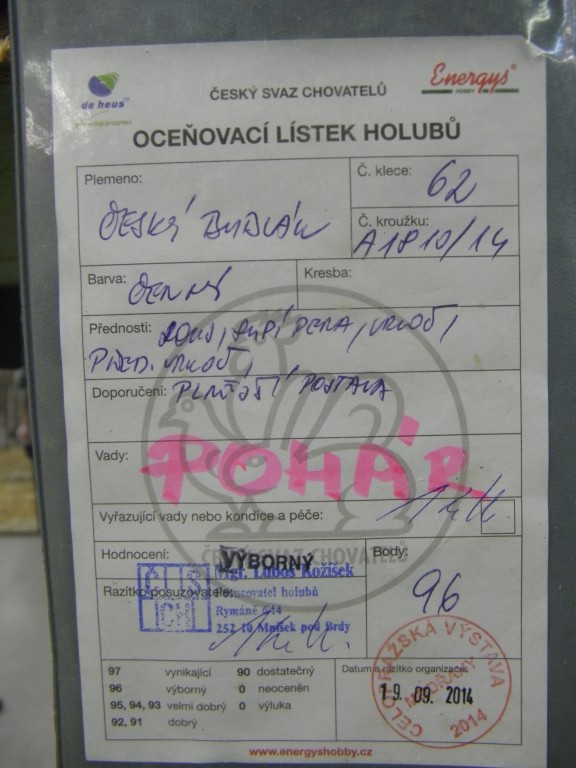 de heus
ČESKÝ SVAZ CHOVATELŮ
Energys
HOBBY
OCEŇOVACÍ LÍSTEK HOLUBŮ
Plemeno:
ČESKÝ BUBLÁK
Č. klece: 62
Č. kroužku:
A1810/14
Barva: ČERNÝ
Kresba:
Přednosti: ZOUB, SUPÍ PERA, VRKOČ,
PŘED. VRKOČ,
Doporučení: PLNĚJŠÍ POSTAVA
Vady:
POHÁR
Vyřazující vady nebo kondice a péče:
ČESKÝ SVAZ CHOVATELŮ
Hodnocení: VÝBORNÝ
Body: 96
Razítko posuzovatele:
ČHS
CH
Mgr. Luboš Kožíšek
Posuzovatel holubů
Rymáně 644
252 10 Mníšek pod Brdy
97 vynikající 90 dostatečný
96 výborný 0 neoceněn
95, 94, 93 velmi dobrý 0 výluka
92, 91 dobrý
Datum a razítko organizace:
19. 09. 2014
VÝSTAVA
2014
www.energyshobby.cz